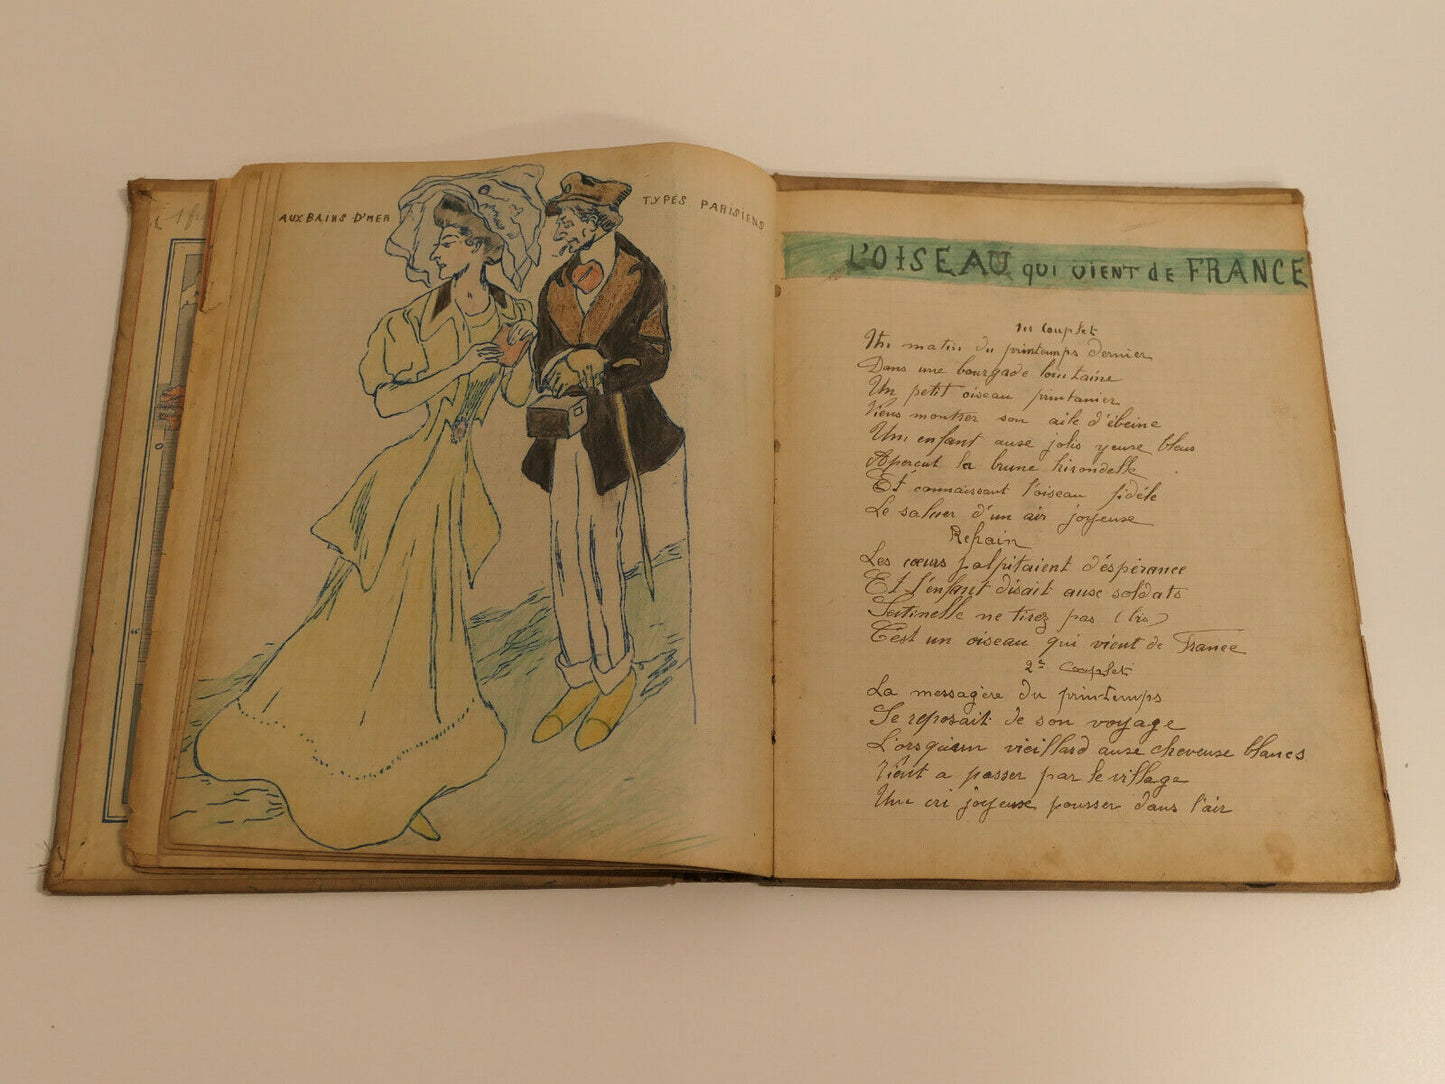 AUX BAINS D'MER
TYPES PARISIENS
L'OISEAU QUI VIENT DE FRANCE
1er Couplet
Un matin du printemps dernier
Dans une bourgade lointaine
Un petit oiseau printanier
Viens montrer son aile d'ébeine
Un enfant auxe jolis yeuxe bleus
Aperçut la brune hirondelle
Et connaissant l'oiseau fidèle
Le saluer d'un air joyeuxe
Refrain
Les cœurs palpitaient d'éspérance
Et l'enfant disait auxe soldats
Sentinelle ne tirez pas (bis)
C'est un oiseau qui vient de France
2e Couplet
La messagère du printemps
Se reposait de son voyage
Lorsqu'un vieillard auxe cheveuxe blancs
Vient a passer par le village
Un cri joyeuxe pousser dans l'air